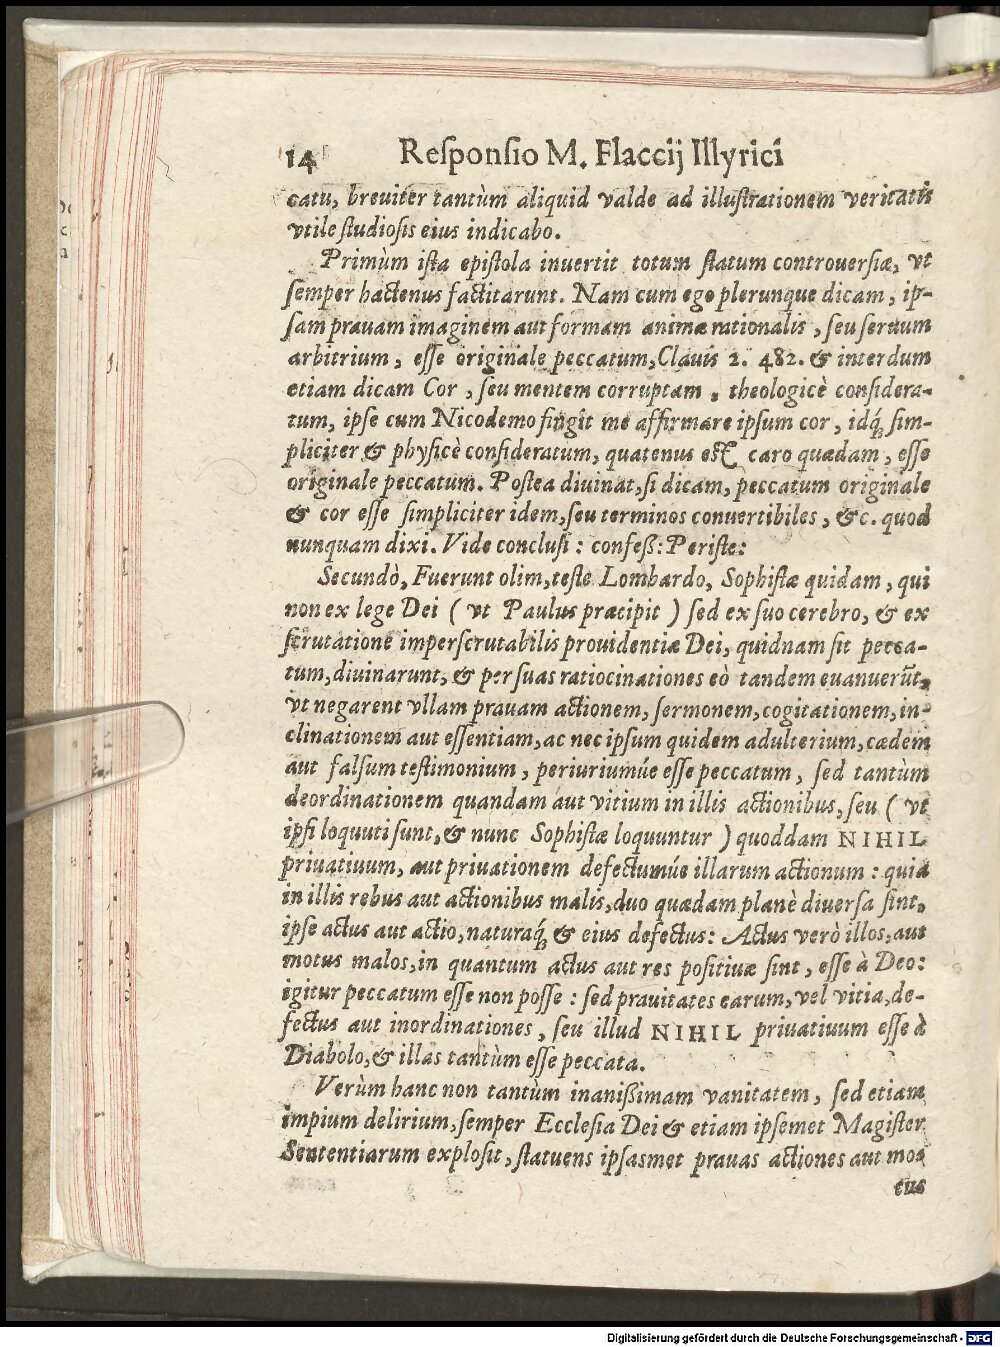 14 Reſponſio M. Flaccij Illyrici
catu, breuiter tantùm aliquid valde ad illuſtrationem veritatis
vtile ſtudioſis eius indicabo.
Primùm iſta epiſtola inuertit totum ſtatum controuerſiæ, vt
ſemper hactenus factitarunt. Nam cum ego plerunque dicam, ip-
ſam prauam imaginem aut formam animæ rationalis, ſeu ſeruum
arbitrium, eſſe originale peccatum, Clauis 2. 482. & interdum
etiam dicam Cor, ſeu mentem corruptam, theologicè conſidera-
tum, ipſe cum Nicodemo fingit me affirmare ipſum cor, idq́ꝫ ſim-
pliciter & phyſicè conſideratum, quatenus eſt caro quædam, eſſe
originale peccatum. Poſtea diuinat, ſi dicam, peccatum originale
& cor eſſe ſimpliciter idem, ſeu terminos conuertibiles, &c. quod
nunquam dixi. Vide concluſi: confeß: Periſte:
Secundò, Fuerunt olim, teſte Lombardo, Sophiſtæ quidam, qui
non ex lege Dei (vt Paulus præcipit) ſed ex ſuo cerebro, & ex
ſcrutatione imperſcrutabilis prouidentiæ Dei, quidnam ſit pecca-
tum, diuinarunt, & per ſuas ratiocinationes eò tandem euanuerūt,
vt negarent vllam prauam actionem, ſermonem, cogitationem, in-
clinationem aut eſſentiam, ac nec ipſum quidem adulterium, cædem
aut falſum teſtimonium, periuriumúe eſſe peccatum, ſed tantùm
deordinationem quandam aut vitium in illis actionibus, ſeu (vt
ipſi loquuti ſunt, & nunc Sophiſtæ loquuntur) quoddam NIHIL
priuatiuum, aut priuationem defectumúe illarum actionum: quia
in illis rebus aut actionibus malis, duo quædam planè diuerſa ſint,
ipſe actus aut actio, naturaq́ꝫ & eius defectus: Actus verò illos, aut
motus malos, in quantum actus aut res poſitiuæ ſint, eſſe à Deo:
igitur peccatum eſſe non poſſe: ſed prauitates earum, vel vitia, de-
fectus aut inordinationes, ſeu illud NIHIL priuatiuum eſſe à
Diabolo, & illas tantùm eſſe peccata.
Verùm hanc non tantùm inanißimam vanitatem, ſed etiam
impium delirium, ſemper Eccleſia Dei & etiam ipſemet Magiſter
Sententiarum exploſit, ſtatuens ipſasmet prauas actiones aut mo-
tus
Digitalisierung gefördert durch die Deutsche Forschungsgemeinschaft - DFG